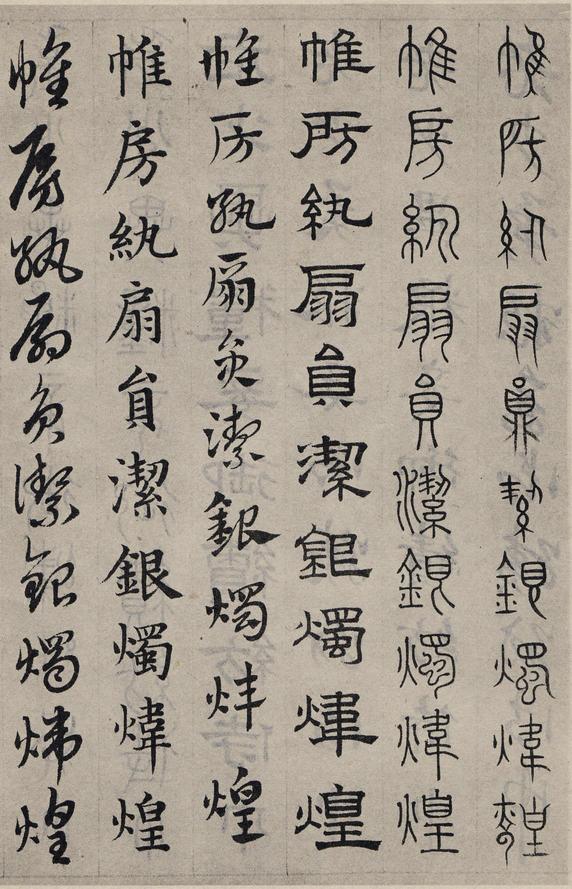 帷房紈扇員潔銀燭煒煌
帷房紈扇員潔銀燭煒煌
帷房紈扇員潔銀燭煒煌
帷房紈扇員潔銀燭煒煌
帷房紈扇員潔銀燭煒煌
帷房紈扇員潔銀燭煒煌